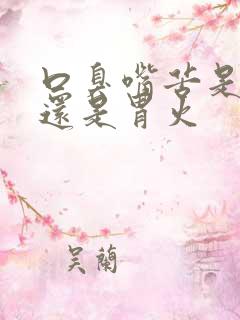 口臭嘴苦是
還是胃火
吴蘭